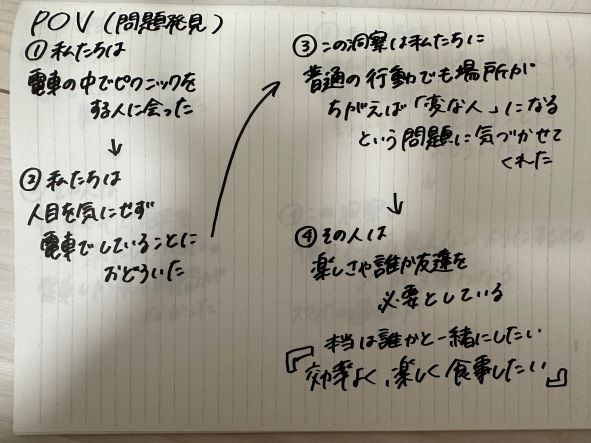 POV (問題発見)
① 私たちは
電車の中でピクニックを
する人に会った
↓
② 私たちは
人目を気にせず
電車でしていることに
おどろいた
③ この洞察は私たちに
普通の行動でも場所が
ちがえば「変な人」になる
という問題に気づかせて
くれた
↓
④ その人は
楽しさや誰か友達を
必要としている
本当は誰かと一緒にしたい
『効率よく、楽しく食事したい』